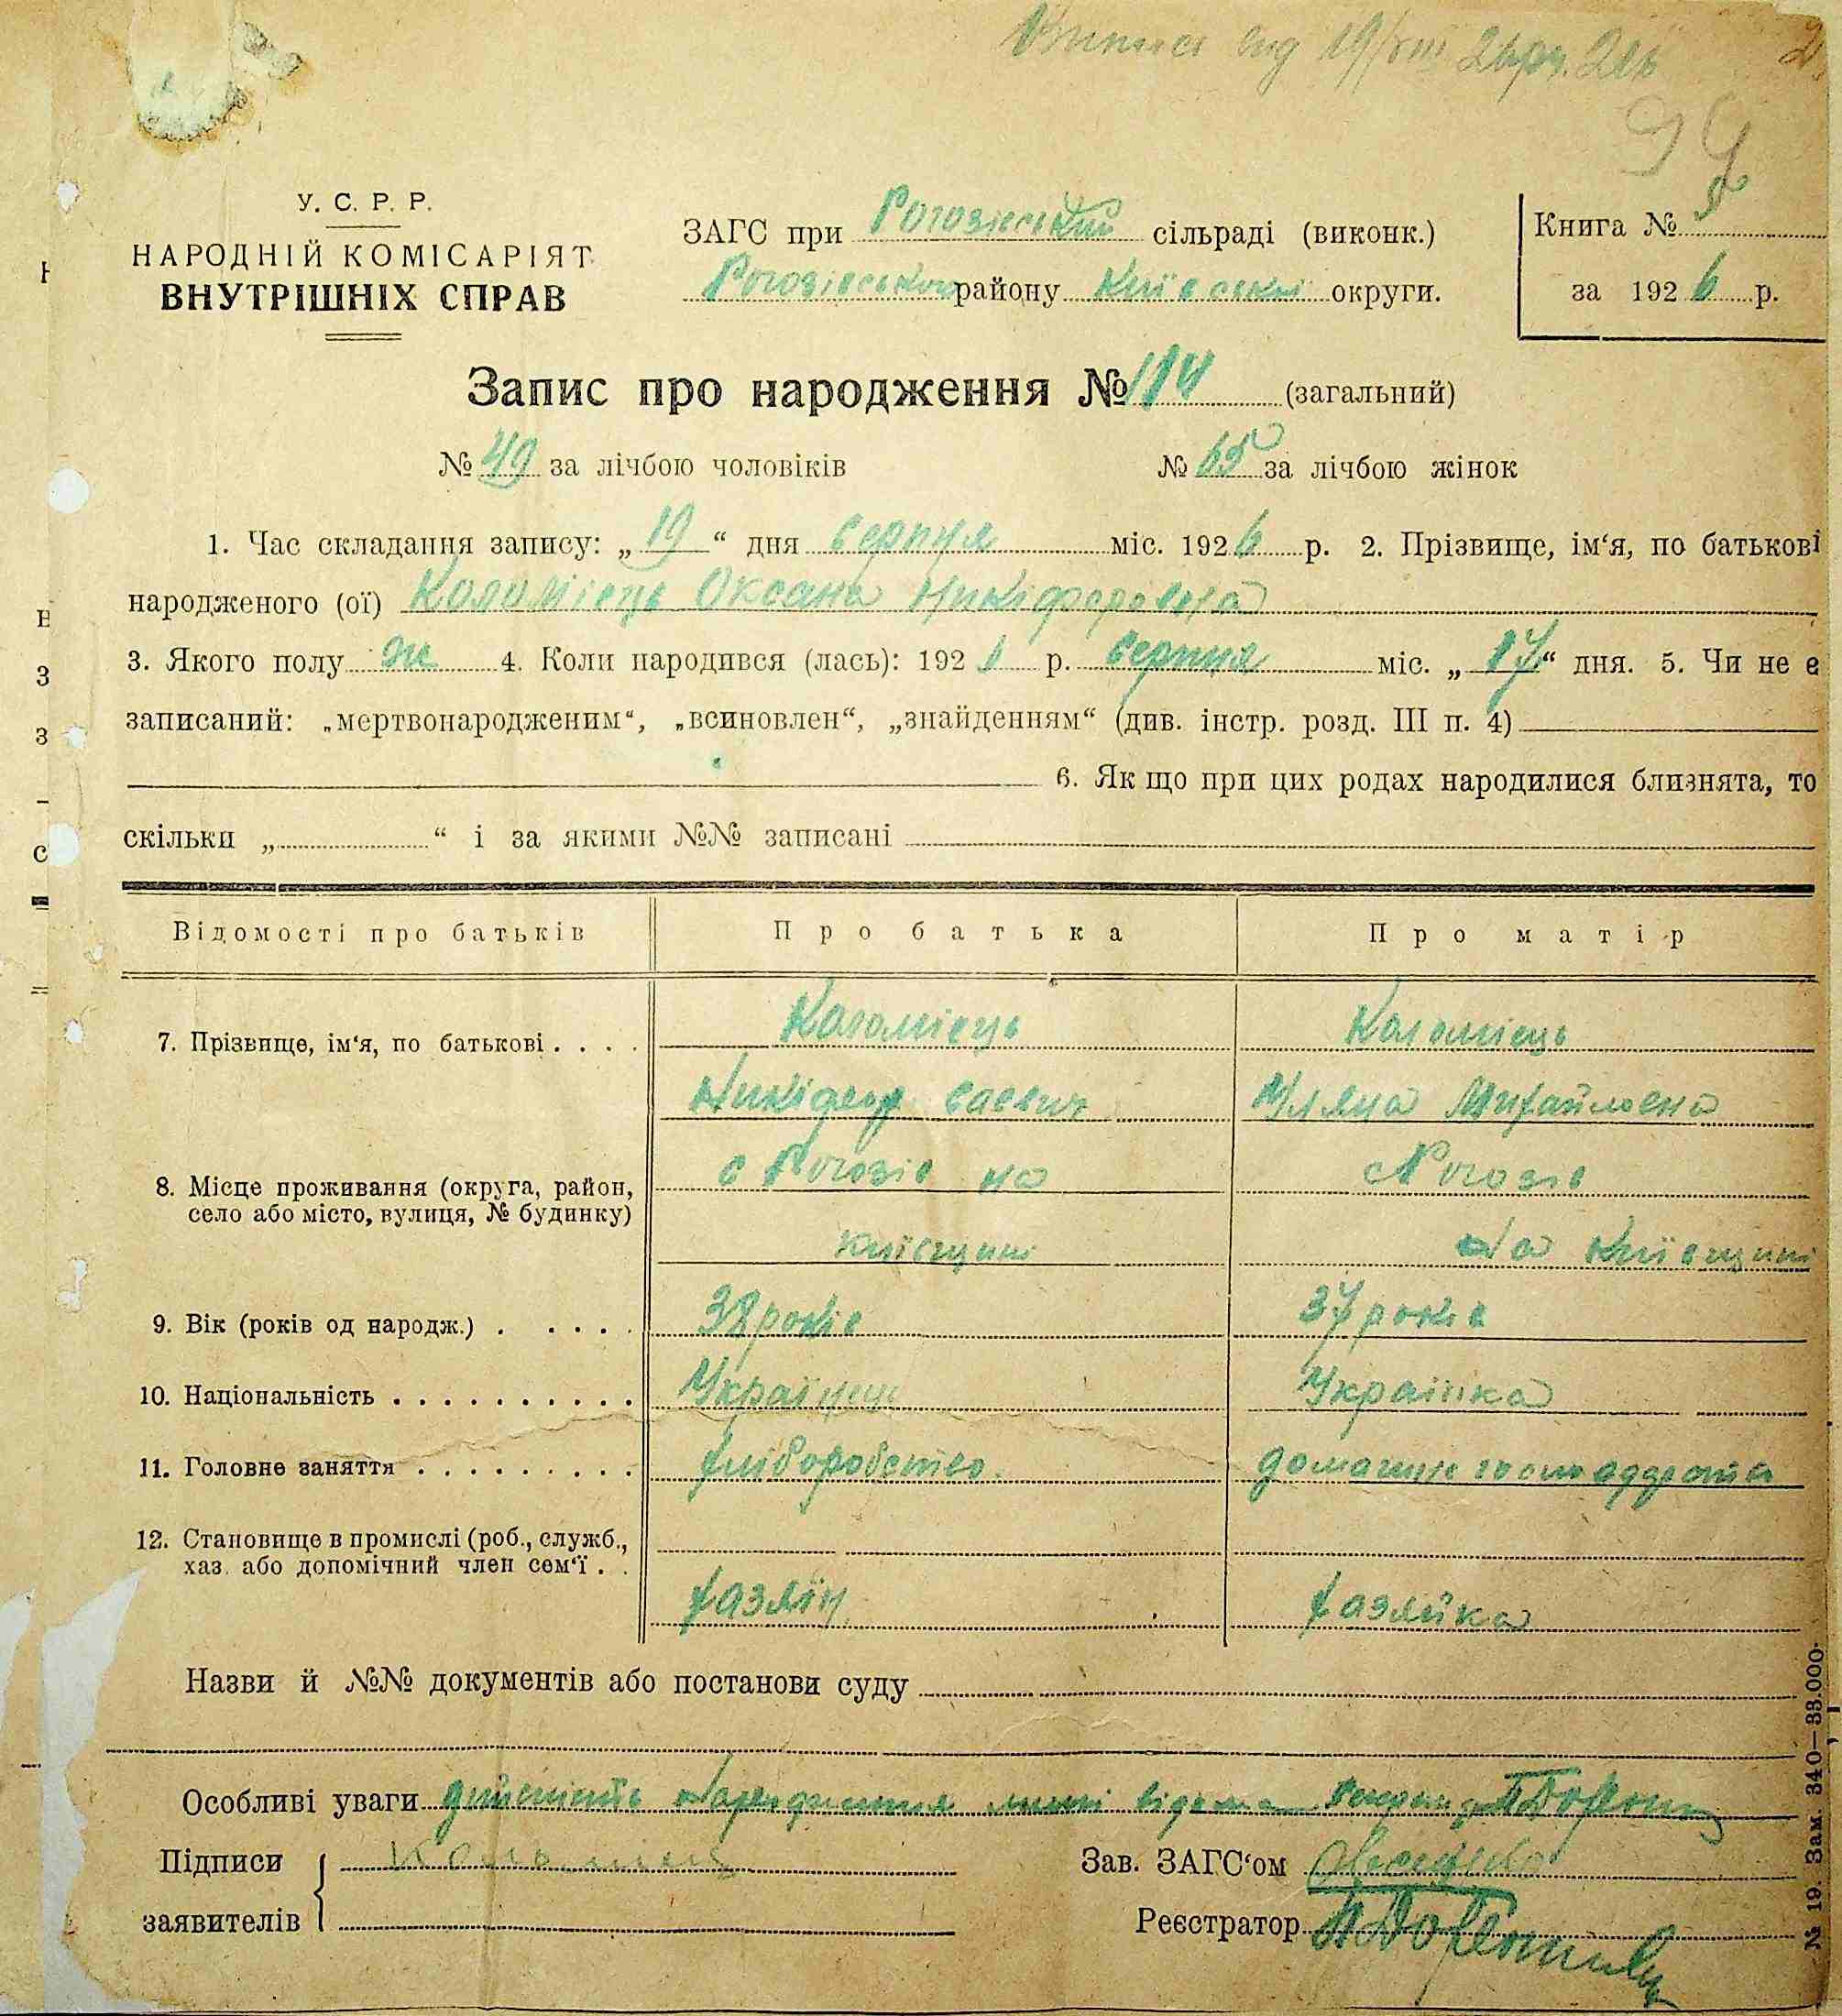 Виписа від 19/VIII 26 р.
99
У. С. Р. Р.
НАРОДНІЙ КОМІСАРІЯТ
ВНУТРІШНІХ СПРАВ
ЗАГС при Рогозівський сільраді (виконк.)
Рогозівського району Київської округи.
Книга №
за 1926 р.
Запис про народження № 114 (загальний)
№ 49 за лічбою чоловіків № 65 за лічбою жінок
1. Час складання запису: „19“ дня серпня міс. 1926 р. 2. Прізвище, ім‘я, по батькові
народженого (ої) Коломієць Оксана Никіфоровна
3. Якого полу ж 4. Коли народився (лась): 192 р. серпня міс. „17“ дня. 5. Чи не є
записаний: „мертвонародженим“, „всиновлен“, „знайденням“ (див. інстр. розд. III п. 4)
6. Як що при цих родах народилися близнята, то
скільки „ “ і за якими №№ записані
Відомості про батьків Про батька Про матір
7. Прізвище, ім‘я, по батькові . . . . Коломієць Коломієць
Никіфор Уляна Михайловна
8. Місце проживання (округа, район, с Рогозів на с Рогозів
село або місто, вулиця, № будинку)
Київщині на Київщині
9. Вік (років од народж.) . . . . . 38 років 37 років
10. Національність . . . . . . . . . . Українець Українка
11. Головне заняття . . . . . . . . . хліборобство домашнє господарство
12. Становище в промислі (роб., служб.,
хаз. або допомічний член сем‘ї . .
хазяїн хазяйка
Назви й №№ документів або постанови суду
Особливі уваги дійсність народження мині відома
Підписи Коломиец Зав. ЗАГС‘ом
заявителів Реєстратор
№ 19. Зам. 340—33.000.